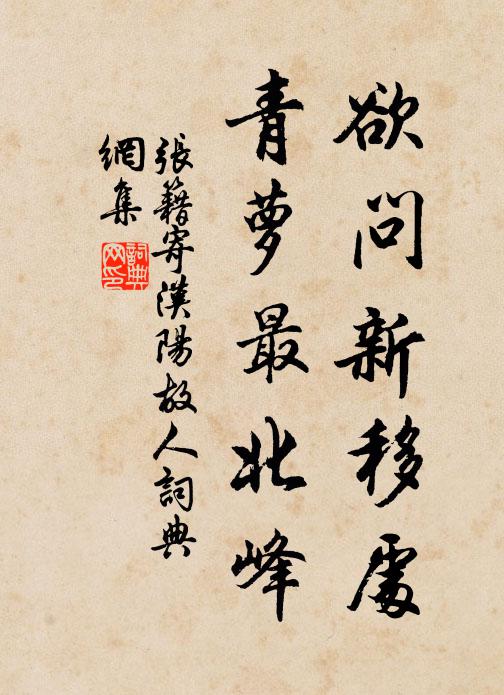 欲问新移處
青萝最北峰
張籍寄漢陽故人詞典
網集
詞典
网印